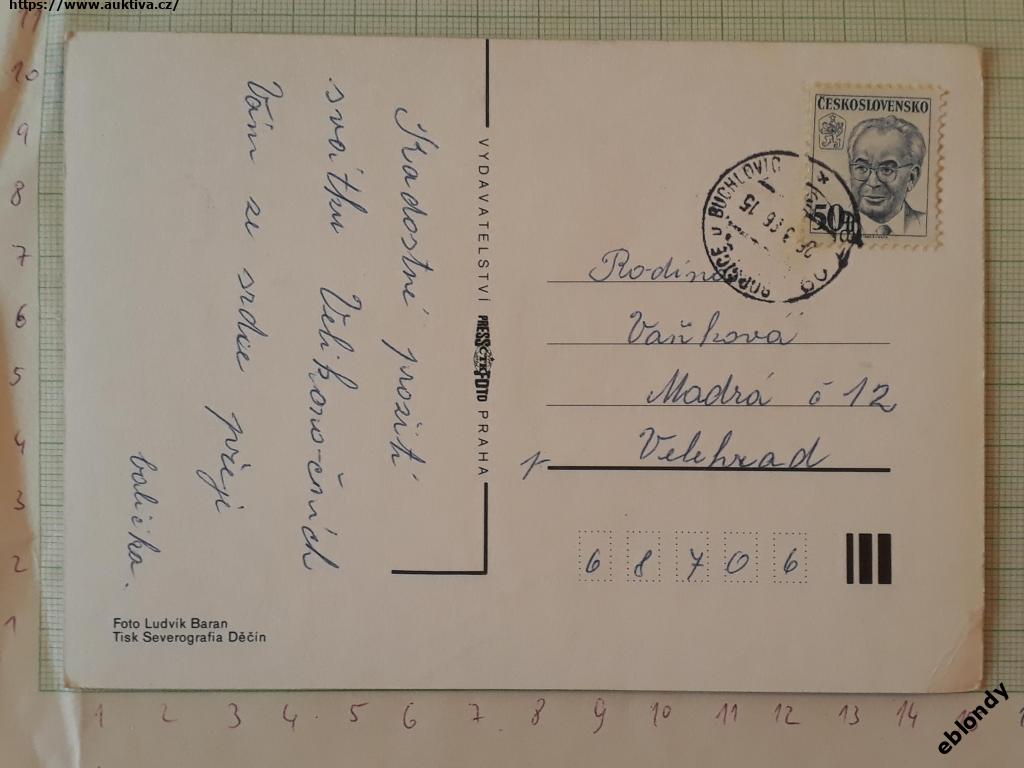 https://www.auktiva.cz/
Radostné prožití
svátků Velikono-čních
Vám ze srdce přeji
babička.
VYDAVATELSTVÍ PRESSFOTO PRAHA
ČTK
ČESKOSLOVENSKO
50h
BUCHLOVIC
Rodina
Vaňková
Modrá č 12
p Velehrad
6 8 7 0 6
Foto Ludvík Baran
Tisk Severografia Děčín
11
10
9
8
7
6
5
4
3
2
1
1 2 3 4 5 6 7 8 9 10 11 12 13 14
eblondy